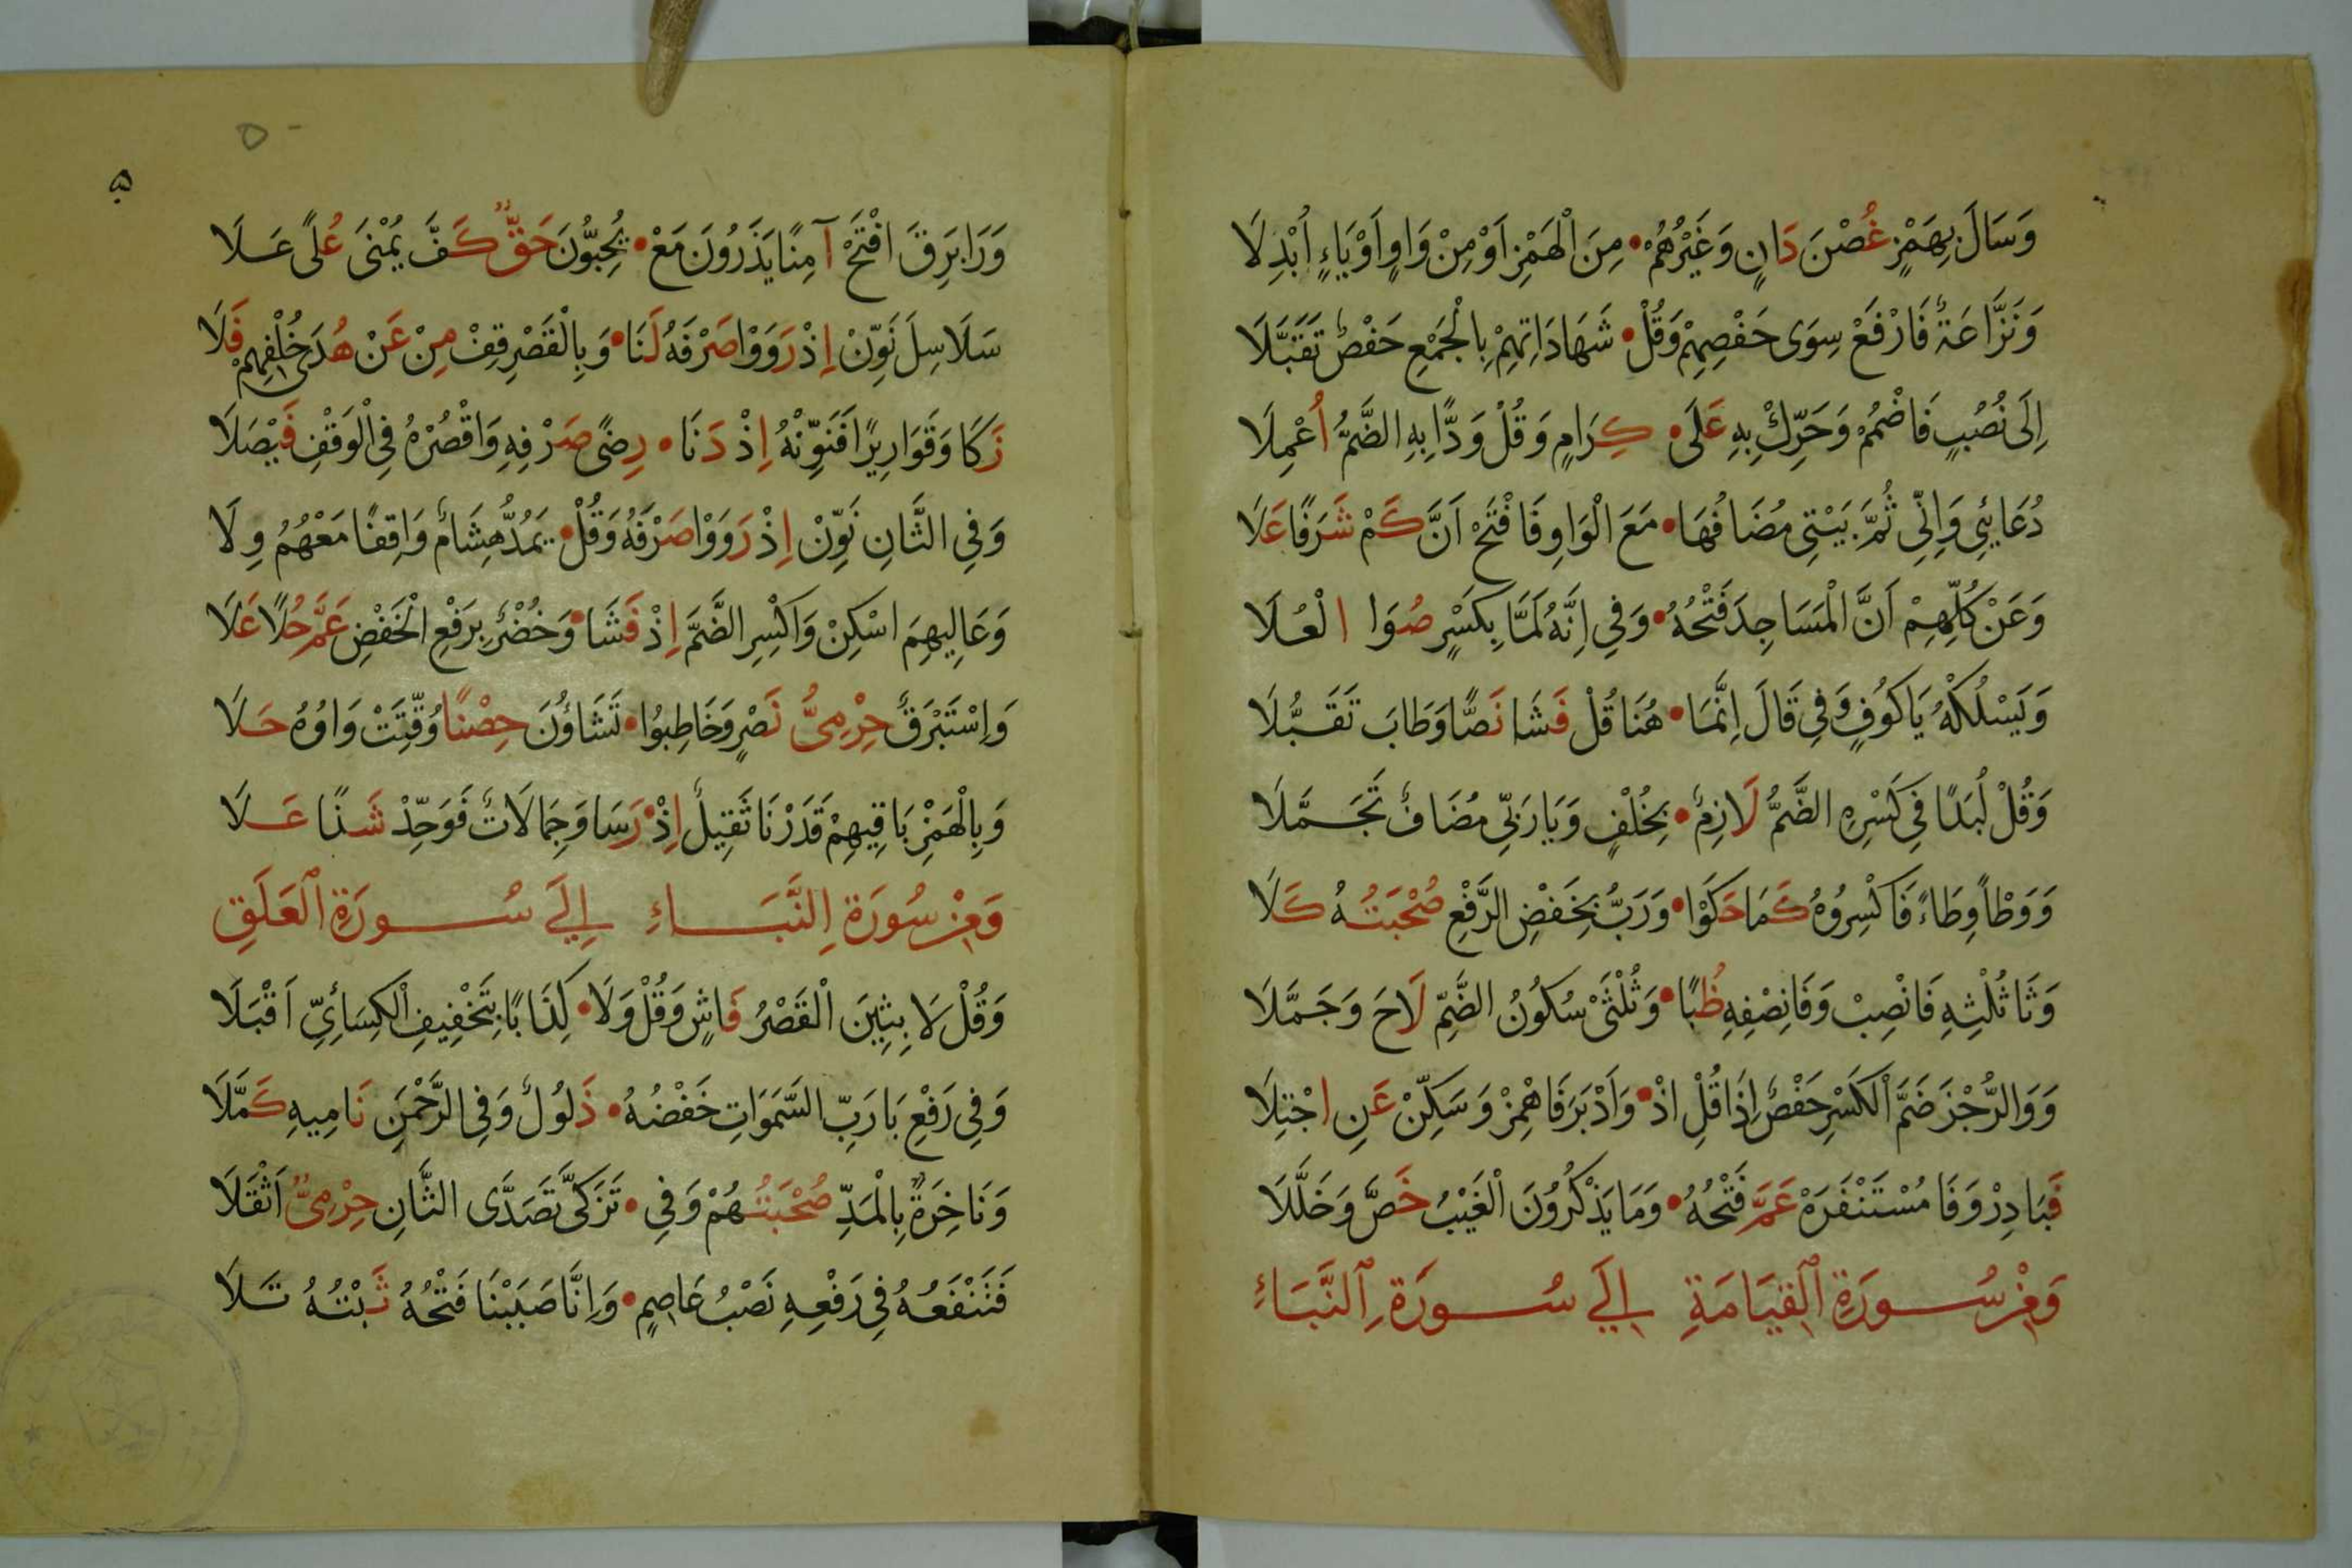 وَسَالَ بِهَمْزٍ غُصْنَ دَانٍ وَغَيْرُهُمْ • مِنَ الْهَمْزِ اَوْ مِنْ وَاوٍ اَوْ يَاءٍ اُبْدِلَا
وَنَزَّاعَةً فَارْفَعْ سِوَى حَفْصِهِمْ وَقُلْ • شَهَادَاتِهِمْ بِالْجَمْعِ حَفْصٌ تَقَبَّلَا
اِلَى نُصُبٍ فَاضْمُمْ وَحَرِّكْ بِهِ عَلَى • كِرَامٍ وَقُلْ وَدًّا بِهِ الضَّمُّ اُعْمِلَا
دُعَائِي وَاِنِّي ثُمَّ بَيْتِي مُضَافُهَا • مَعَ الْوَاوِ فَافْتَحْ اَنَّ كَمْ شَرَفًا عَلَا
وَعَنْ كُلِّهِمْ اَنَّ الْمَسَاجِدَ فَتْحُهُ • وَفِي اِنَّهُ لَمَّا بِكَسْرٍ صُوَا الْعُلَا
وَيَسْلُكْهُ يَا كُوفٍ وَفِي قَالَ اِنَّمَا • هُنَا قُلْ فَشَا نَصًّا وَطَابَ تَقَبُّلَا
وَقُلْ لُبَدًا فِي كَسْرِهِ الضَّمُّ لَازِمٌ • بِخُلْفٍ وَيَا رَبِّي مُضَافٌ تَجَمَّلَا
وَوَطْاً وِطَاءً فَاكْسِرُوهُ كَمَا حَكَوْا • وَرَبُّ بِخَفْضِ الرَّفْعِ صُحْبَتُهُ كَلَا
وَثَا ثُلْثِهِ فَانْصِبْ وَفَا نِصْفِهِ ظُبًا • وَثُلْثَيْ سُكُونُ الضَّمِّ لَاحَ وَجَمَّلَا
وَوَالرُّجْزَ ضَمَّ الْكَسْرِ حَفْصٌ اِذَا قُلِ اذْ • وَاَدْبَرَ فَاهْمِزْ وَسَكِّنْ عَنِ اجْتِلَا
فَبَادِرْ وَفَا مُسْتَنْفَرَهْ عَمَّ فَتْحُهُ • وَمَا يَذْكُرُونَ الْغَيْبُ خَصَّ وَخَلَّلَا
وَمِنْ سُورَةِ الْقِيَامَةِ اِلَى سُورَةِ النَّبَاءِ
۵
وَرَا بَرِقَ افْتَحْ آمِنًا يَذَرُونَ مَعْ • يُحِبُّونَ حَقٌّ كَفَّ يُمْنَى عُلًى عَلَا
سَلَاسِلَ نَوِّنْ اِذْ رَوَوْا صَرْفَهُ لَنَا • وَبِالْقَصْرِ قِفْ مِنْ عَنْ هُدَى خُلْفِهِمْ فَلَا
زَكَا وَقَوَارِيرًا فَنَوِّنْهُ اِذْ دَنَا • رِضًى صَرْفِهِ وَاقْصُرْهُ فِي الْوَقْفِ فَيْصَلَا
وَفِي الثَّانِ نَوِّنْ اِذْ رَوَوْا صَرْفَهُ وَقُلْ • يَمُدُّ هِشَامٌ وَاقِفًا مَعْهُمُ وِلَا
وَعَالِيهِمَ اسْكِنْ وَاكْسِرِ الضَّمَّ اِذْ فَشَا • وَخُضْرٌ بِرَفْعِ الْخَفْضِ عَمَّ حُلًا عَلَا
وَاِسْتَبْرَقٌ حِرْمِيُّ نَصْرٍ وَخَاطِبُوا • تَشَاؤُنَ حِصْنًا وُقِّتَتْ وَاوُهُ حَلَا
وَبِالْهَمْزِ بَاقِيهِمْ قَدَرْنَا ثَقِيلٌ اِذْ • رَسَا وَجِمَالَاتٌ فَوَحِّدْ شَذًا عَلَا
وَمِنْ سُورَةِ النَّبَاءِ اِلَى سُورَةِ الْعَلَقِ
وَقُلْ لَا بِثِينَ الْقَصْرُ فَاشٍ وَقُلْ وَلَا • كِذَابًا بِتَخْفِيفِ الْكِسَائِيِّ اَقْبَلَا
وَفِي رَفْعِ بَا رَبِّ السَّمَوَاتِ خَفْضُهُ • ذَلُولٌ وَفِي الرَّحْمَنِ نَامِيهِ كَمَّلَا
وَنَاخِرَةٌ بِالْمَدِّ صُحْبَتُهُمْ وَفِي • تَزَكَّى تَصَدَّى الثَّانِ حِرْمِيٌّ اَثْقَلَا
فَتَنْفَعُهُ فِي رَفْعِهِ نَصْبُ عَاصِمٍ • وَاِنَّا صَبَبْنَا فَتْحُهُ ثَبْتُهُ تَلَا